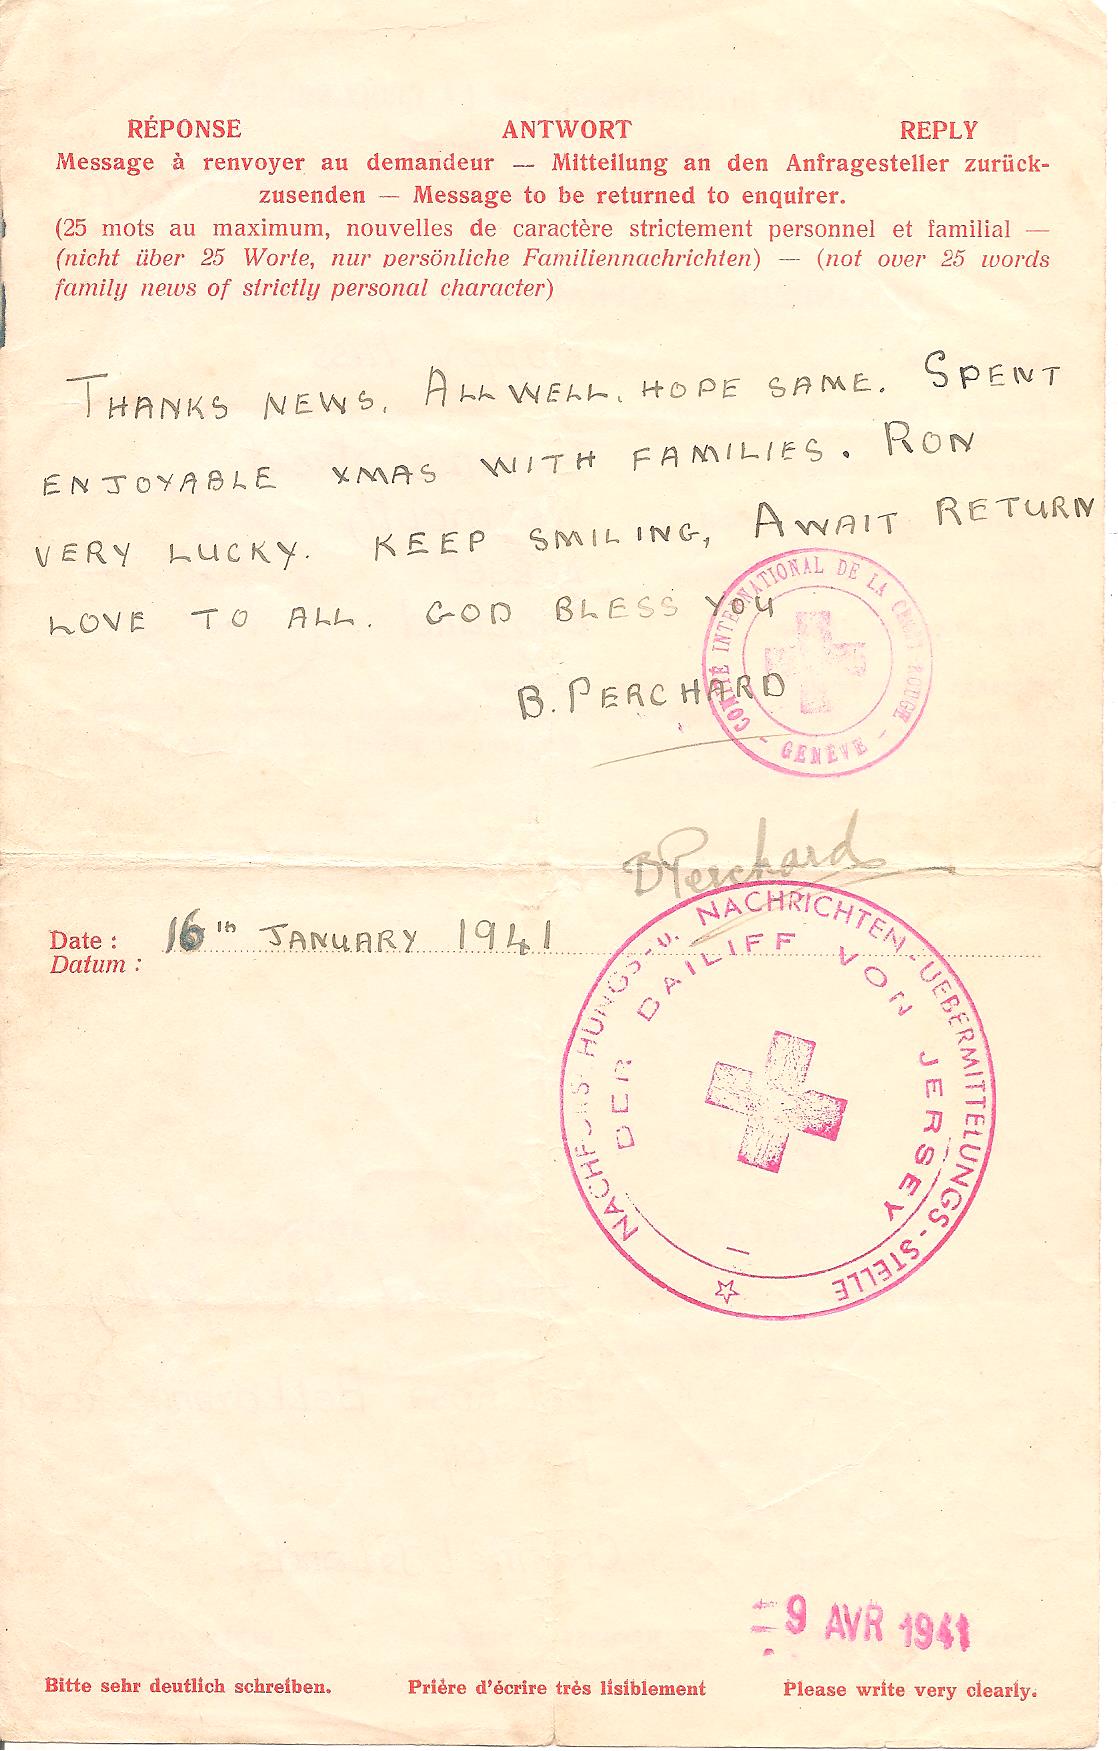 RÉPONSE ANTWORT REPLY
Message à renvoyer au demandeur — Mitteilung an den Anfragesteller zurück-
zusenden — Message to be returned to enquirer.
(25 mots au maximum, nouvelles de caractère strictement personnel et familial —
(nicht über 25 Worte, nur persönliche Familiennachrichten) — (not over 25 words
family news of strictly personal character)
THANKS NEWS. ALL WELL. HOPE SAME. SPENT
ENJOYABLE XMAS WITH FAMILIES. RON
VERY LUCKY. KEEP SMILING, AWAIT RETURN
LOVE TO ALL. GOD BLESS YOU
B. PERCHARD
COMITÉ INTERNATIONAL DE LA CROIX-ROUGE
- GENÈVE -
B Perchard
Date : 16th JANUARY 1941
Datum :
NACHFORSCHUNGS- u. NACHRICHTEN-UEBERMITTELUNGS-STELLE
DER BAILIFF VON JERSEY
9 AVR 1941
Bitte sehr deutlich schreiben. Prière d'écrire très lisiblement Please write very clearly.